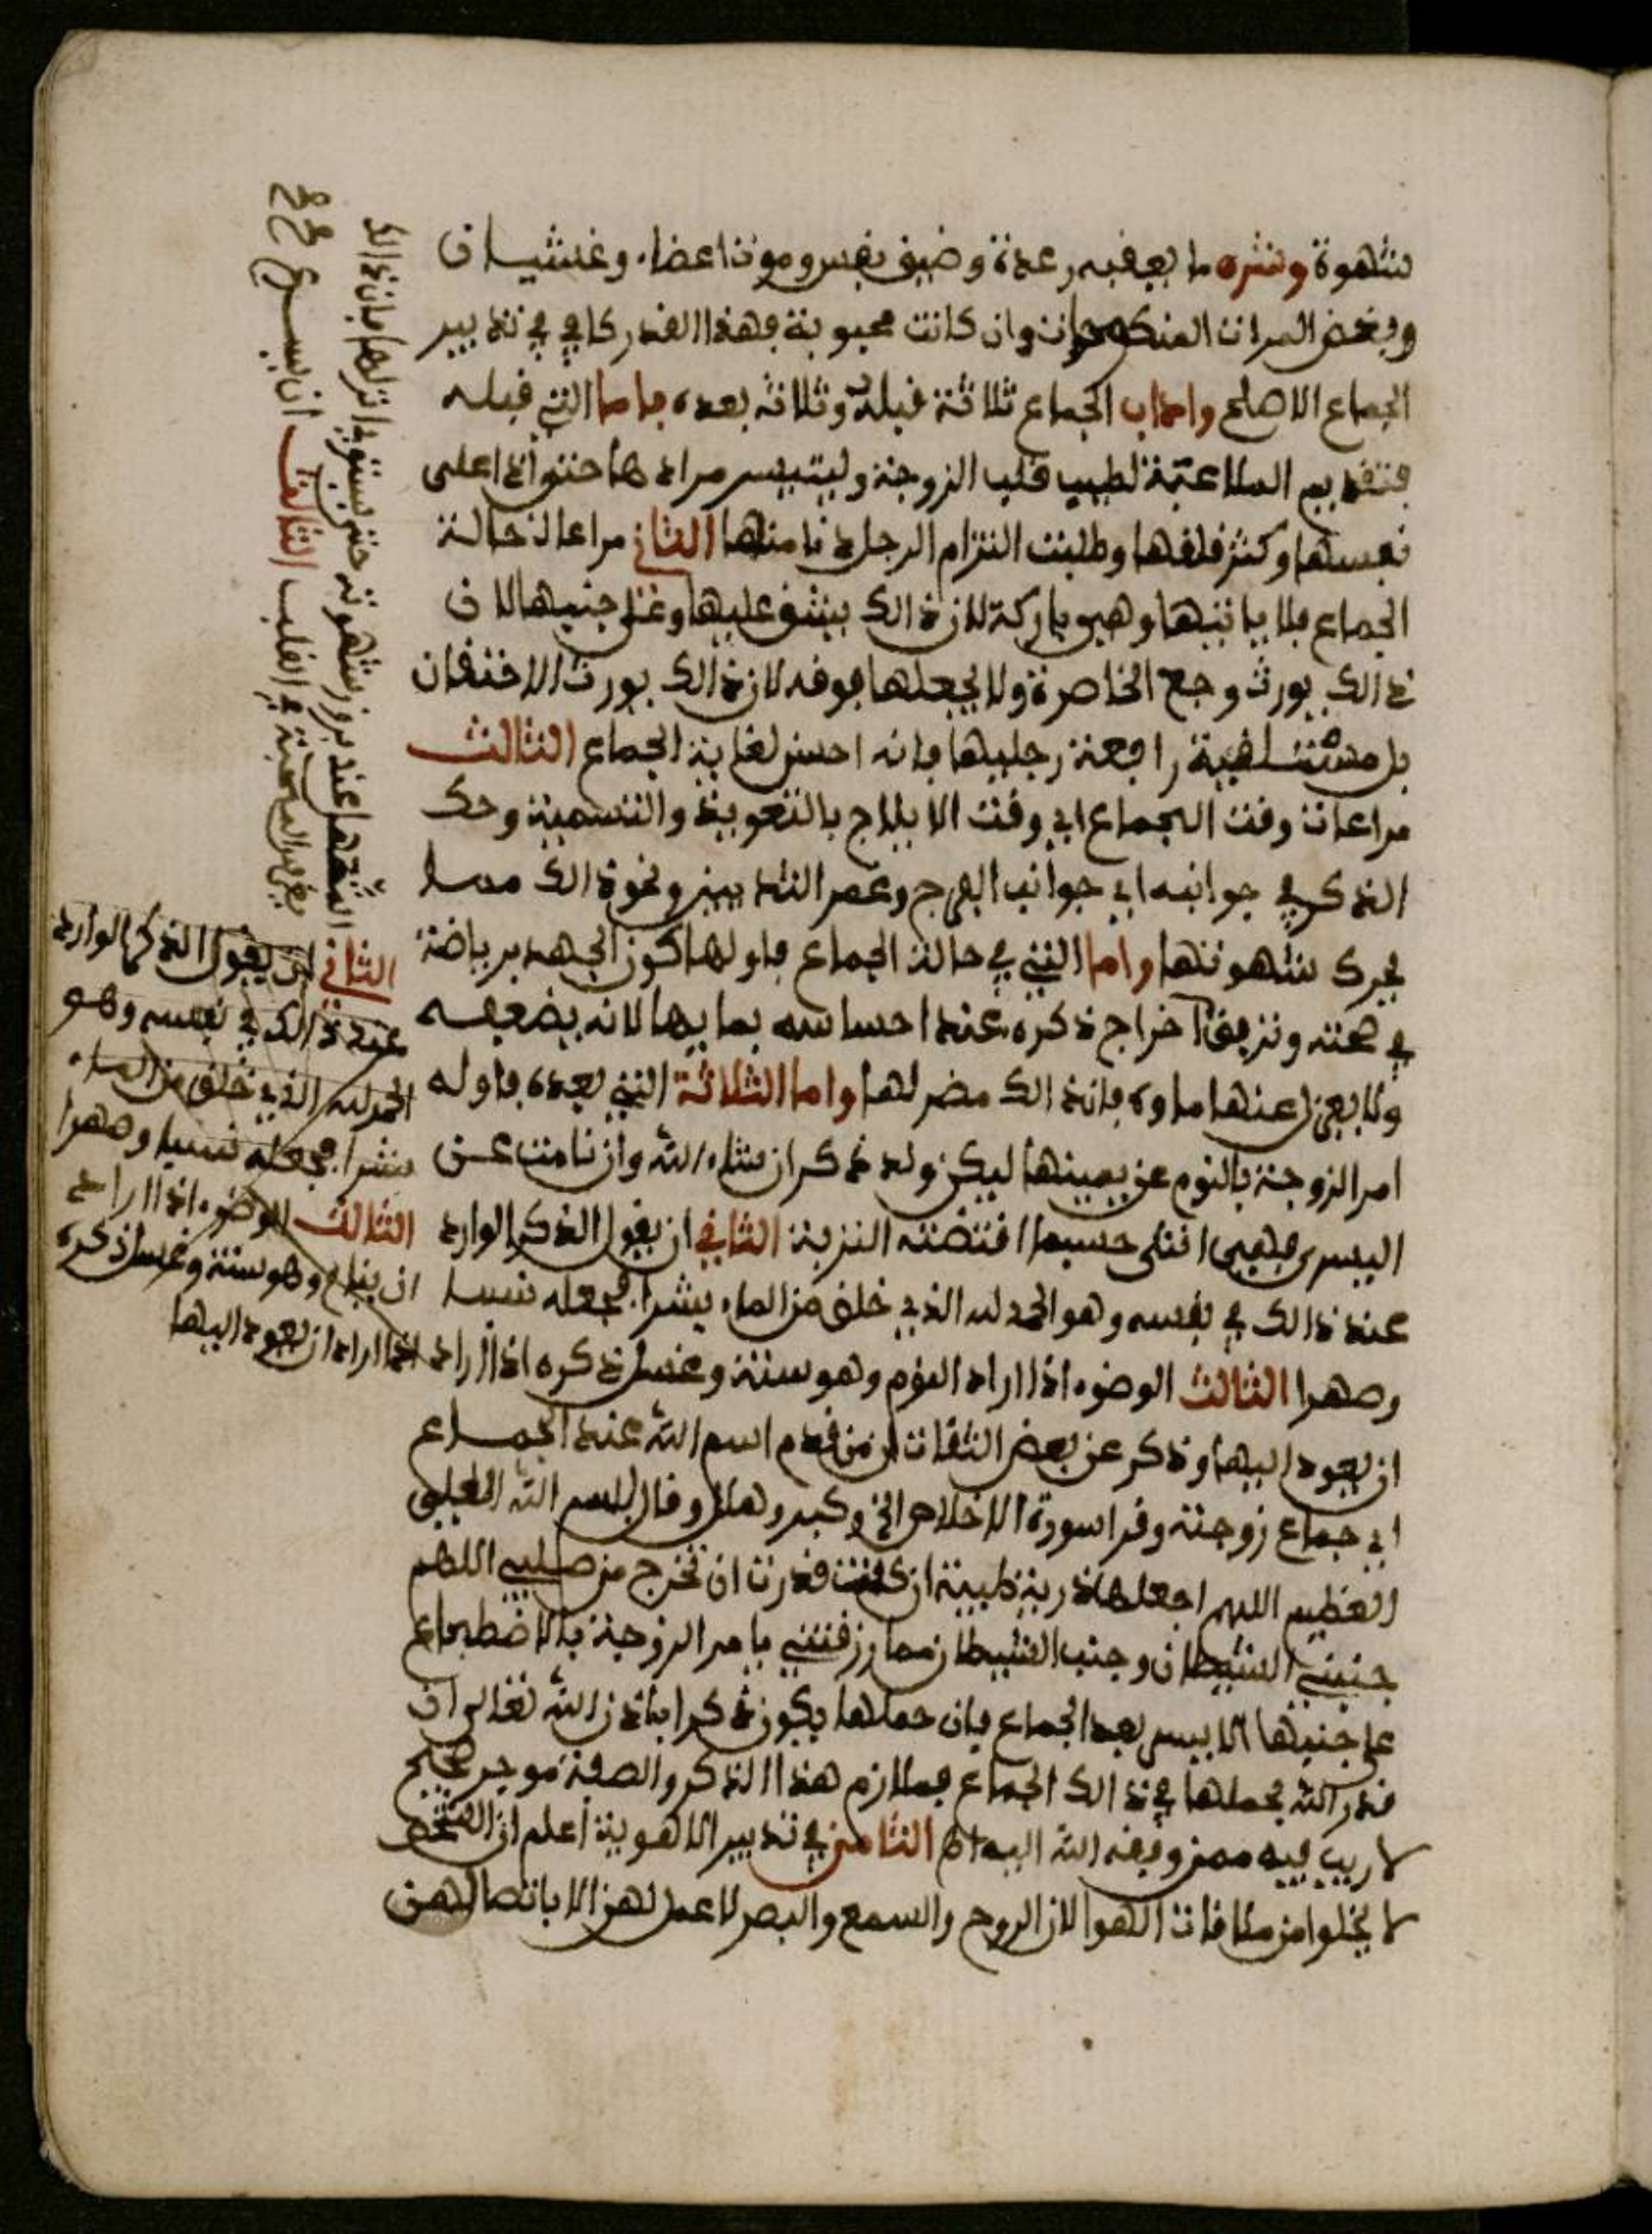 شهوة وشره ما يعقبه رعدة وضيق نفس وموت اعضاء وغشيان
وبغض المرات المنكوحات وان كانت محبوبة فهذا القدر كافي في تدبير
الجماع الاصلح واداب الجماع ثلاثة قبله وثلاثة بعده فاما التي قبله
فتقديم الملاعبة لطيب قلب الزوجة وليتيسر مرادها حتى اذا علي
نفسها وكثر قلقها وطلبت التزام الرجل دنا منها الثاني مراعاة حالة
الجماع فلا ياتيها وهي باركة لان ذالك يشق عليها وعلى جنبها لان
ذالك يورث وجع الخاصرة ولا يجعلها فوقه لان ذالك يورث الاختقان
بل مستلقية رافعة رجليها فانه احسن لغاية الجماع الثالث
مراعات وقت الجماع اي وقت الايلاج بالتعويذ والتسمية وحك
الذكر في جوانبه اي جوانب الفرج وعصر الثديين ونحو ذالك مما
يحرك شهوتها واما التي في حالة الجماع فاولها كون الجهد برياضة
في صحته وترفق اخراج ذكره عند احساسه بمايها لانه يضعفه
ولا يعزل عنها ماوه فان ذالك مضر لها واما الثلاثة التي بعده فاوله
امر الزوجة بالنوم عن يمينها ليكن ولد ذكر ان شاء الله وان نامت عن
اليسرى فهي انثى حسبما اقتضته التزبة الثاني ان يقول الذكر الوارد
عند ذالك في نفسه وهو الحمد لله الذي خلق من الماء بشرا فجعله نسبا
وصهرا الثالث الوضوء اذا اراد النوم وهو سنة وغسل ذكره اذا اراد
ان يعود اليها وذكر عن بعض الثقات ان من قدم اسم الله عند الجماع
اي جماع زوجته وقرا سورة الاخلاص الخ وكبر وهلل وقال بسم الله العلي
العظيم اللهم اجعلها ذرية طيبة ان كنت قدرت ان تخرج من صلبي اللهم
جنبني الشيطان وجنب الشيطان مما رزقتني يامر الزوجة بالاضطجاع
على جنبها الايسر بعد الجماع فان حملها يكون ذكرا باذن الله تعالى ان
قدر الله بحملها في ذالك الجماع فملازم هذا الذكر والصفة صحيح
لا ريب فيه ممن وفقه الله اليه اه الثامن في تدبير الاهوية اعلم ان الشخص
لا يخلوا من ملاقات الهوا لان الروح والسمع والبصر لا عمل لهن الا باتصالهن
انزلها فان ذالك
حتى يستوي شهوته عند بروز شهوتها
يغرس المحبة في القلب الثالث ان يسرع
صح صح
الثاني ان يقول الذكر الوارد
عند ذالك في نفسه وهو
الحمد لله الذي خلق من الماء
بشرا فجعله نسبا وصهرا
الثالث الوضوء اذا اراد
ان ينام وهو سنة وغسل ذكره
اذا اراد ان يعود اليها